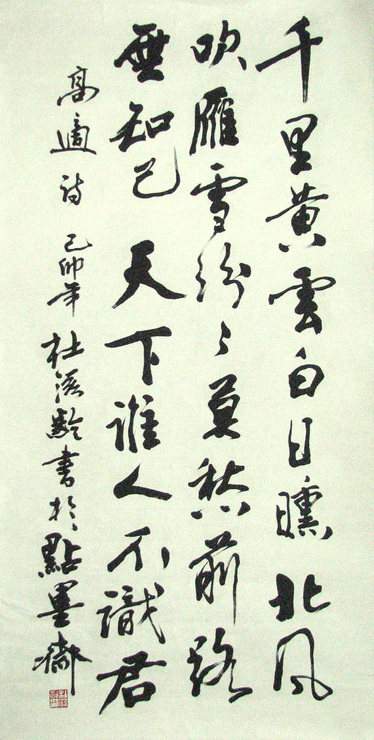 千里黄雲白日曛北风
吹雁雪紛々莫愁前路
無知己天下誰人不識君
高適詩 己卯年 杜 書於點墨齋